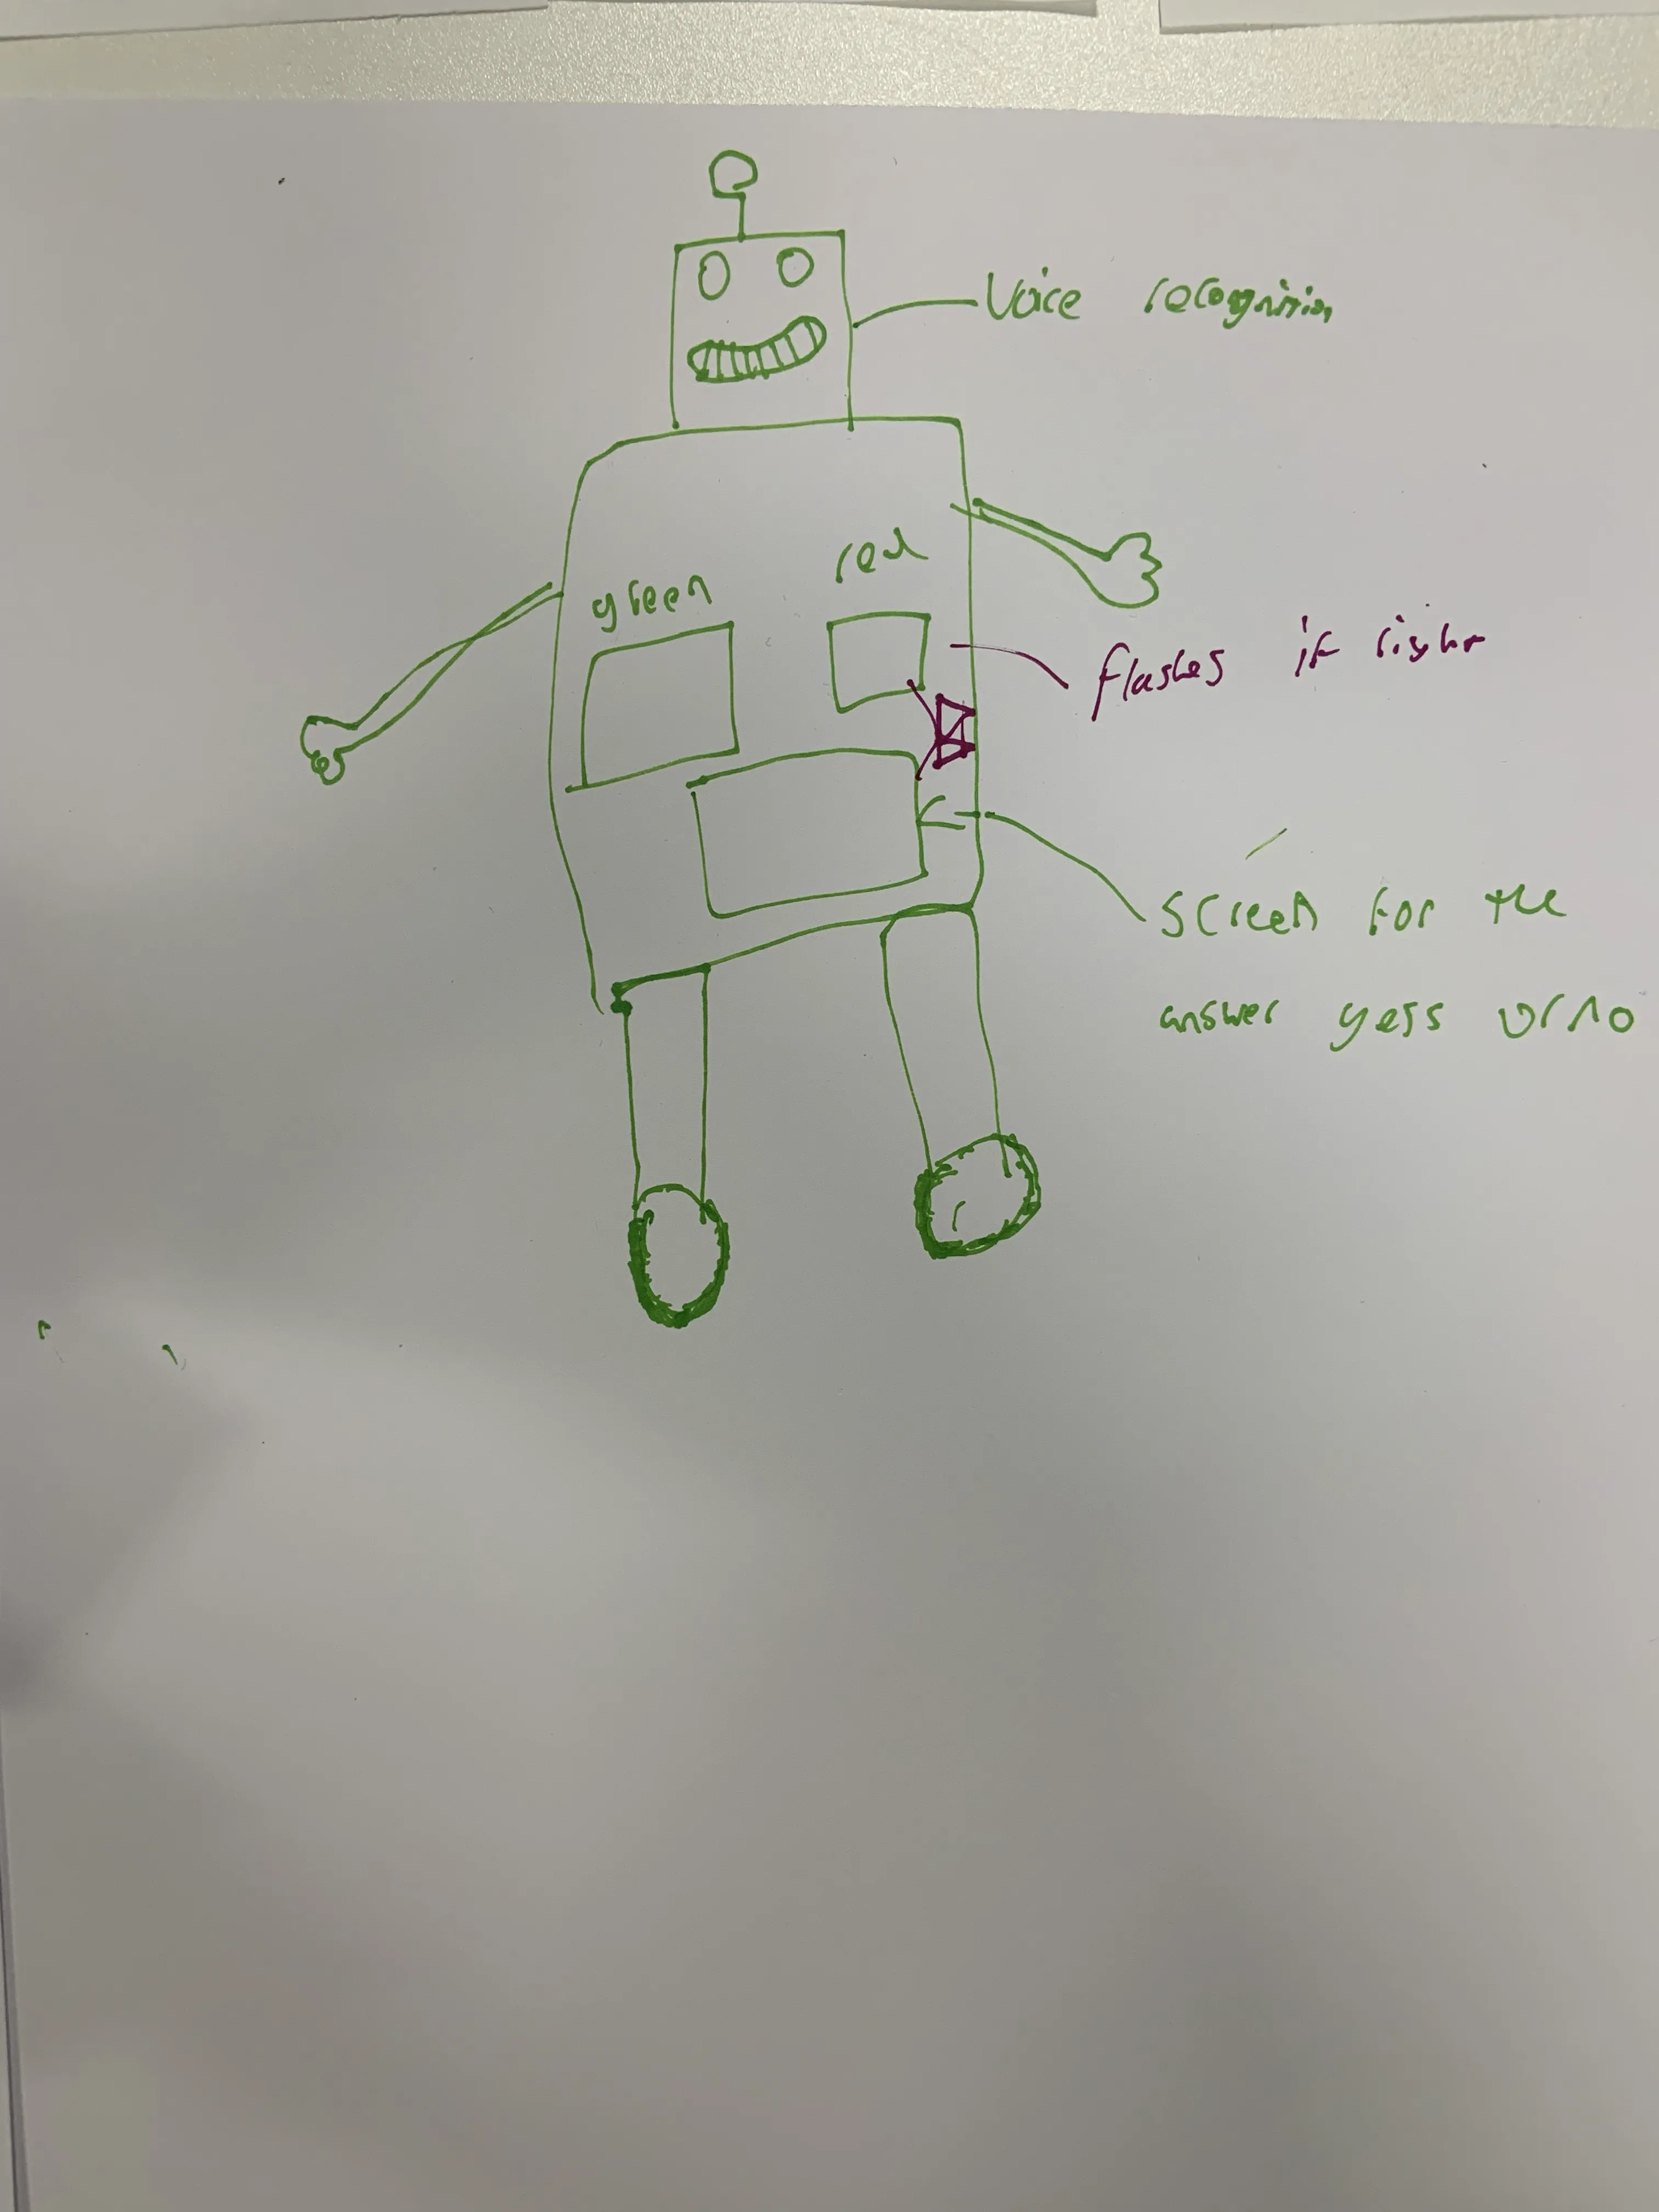 Voice recognition
red
green
flashes if right
screen for the
answer yess or no